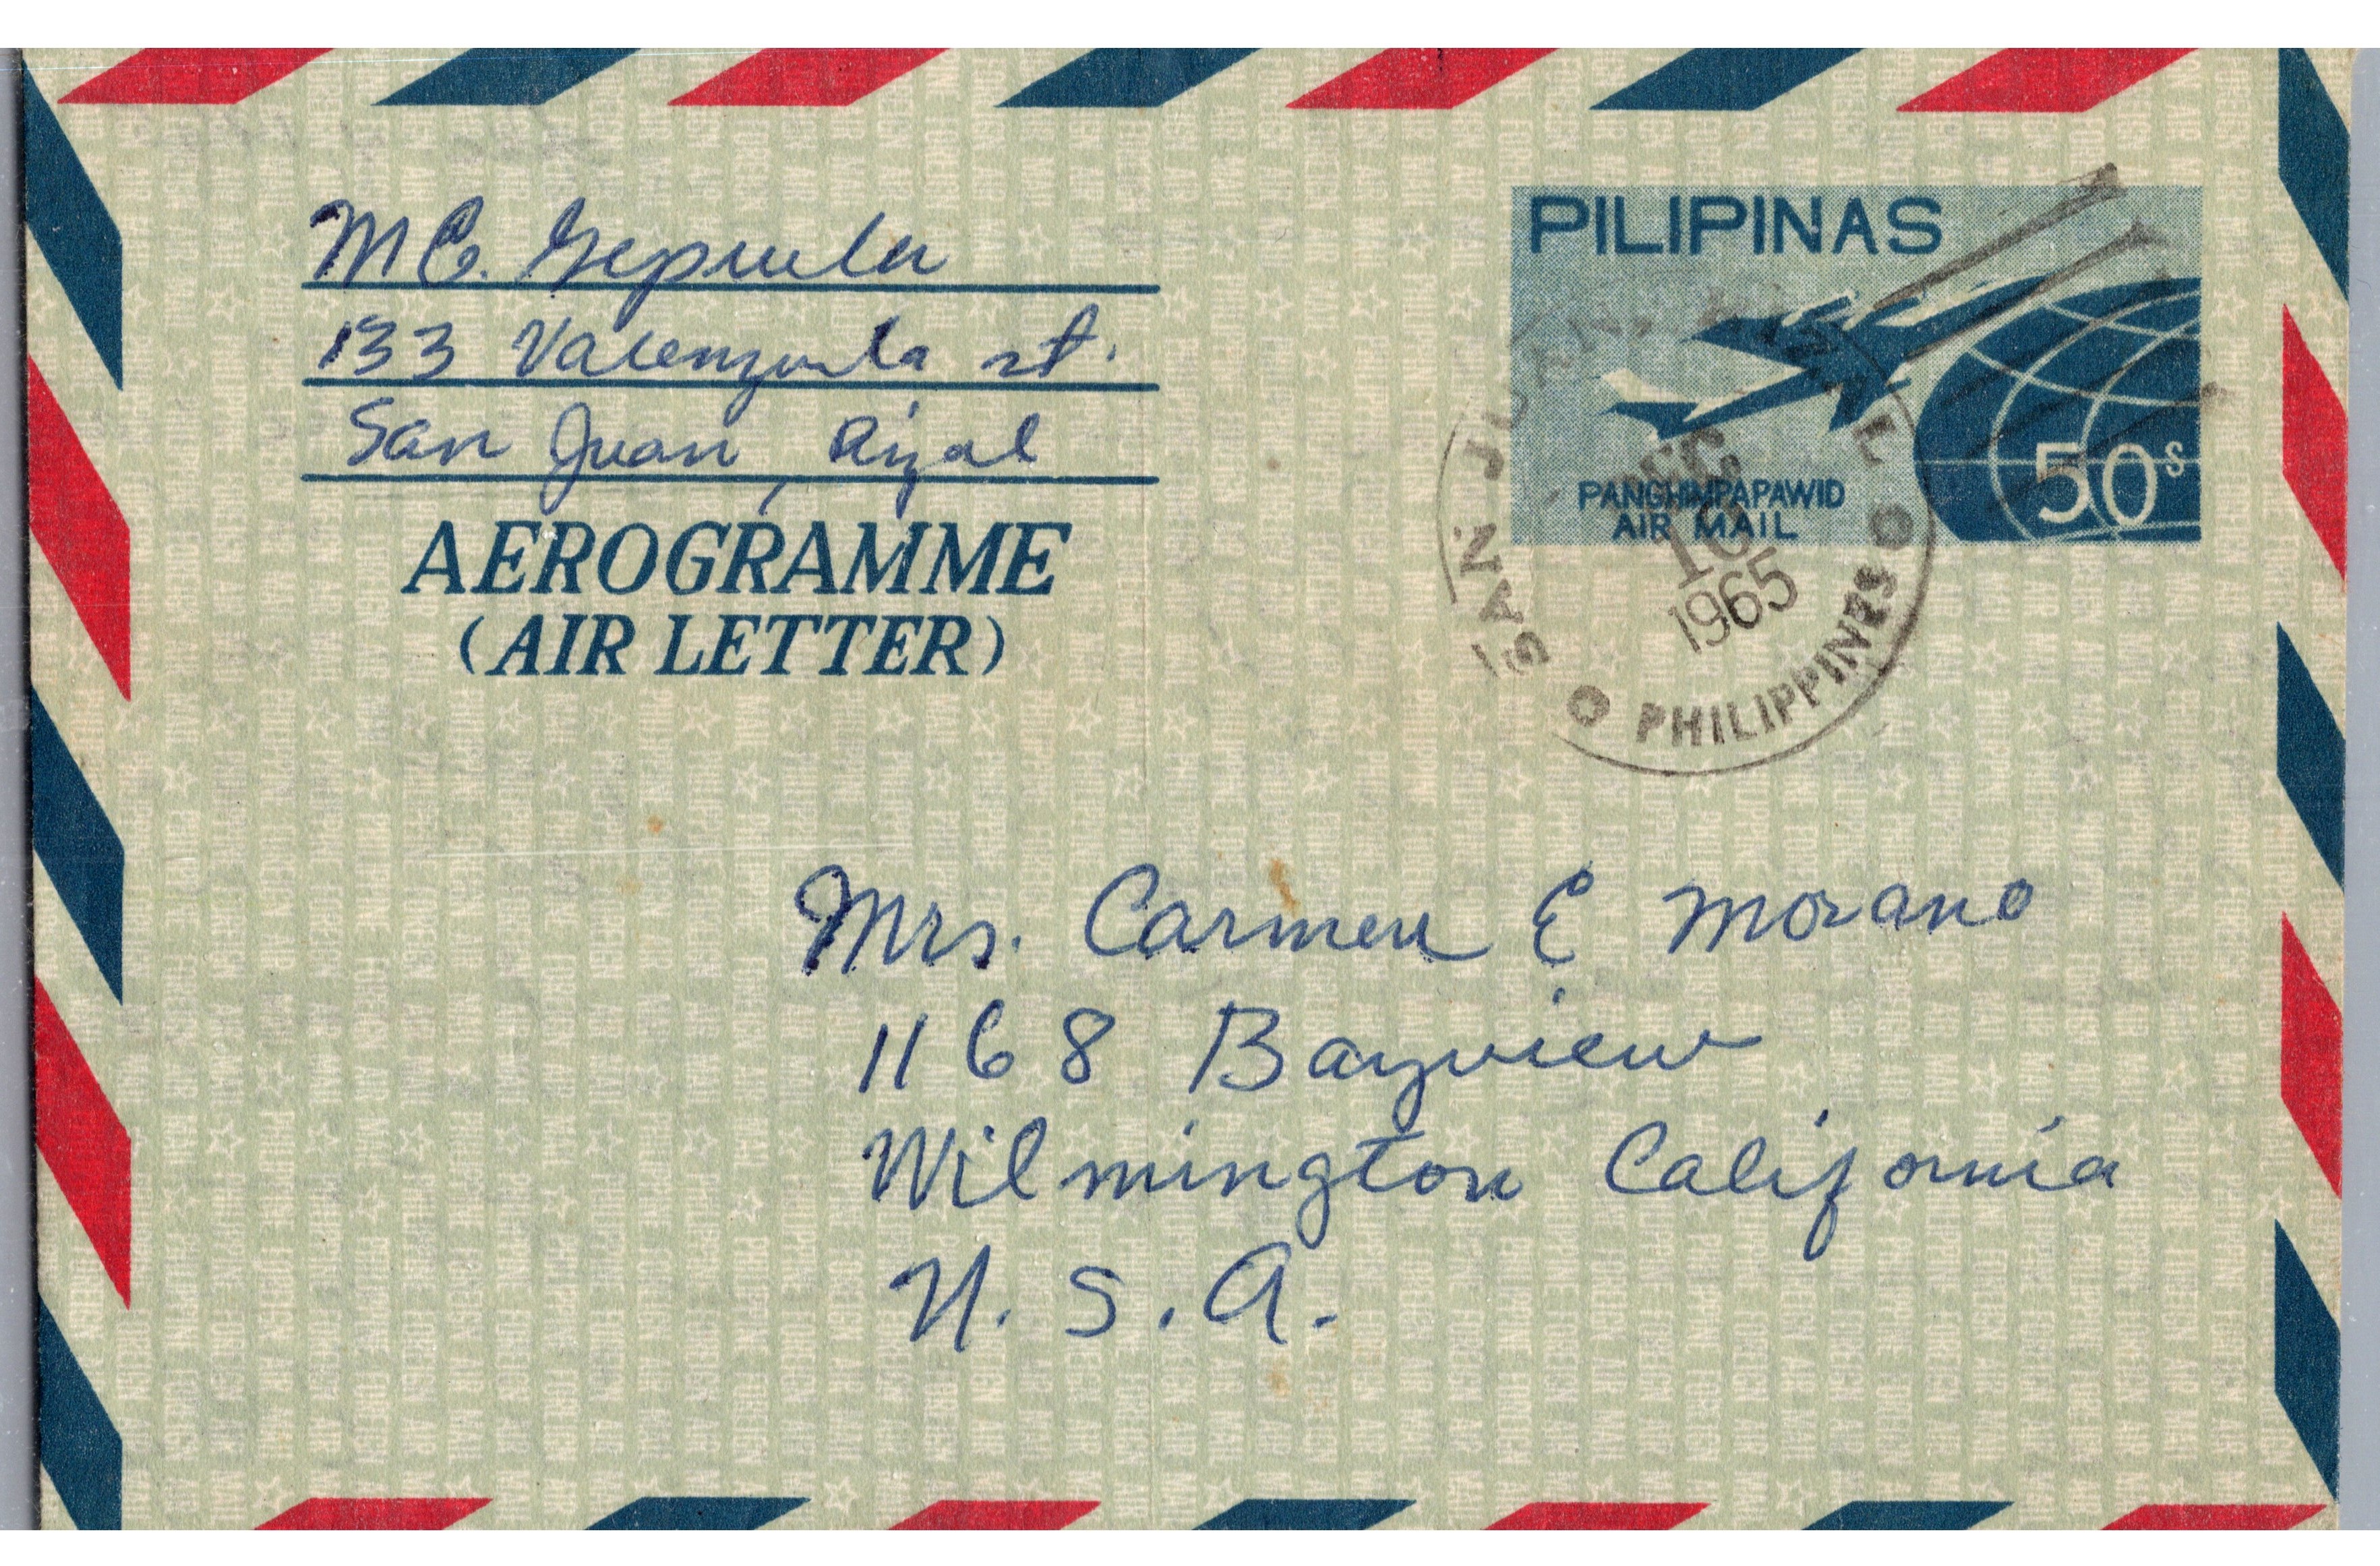 M C. Gepuela
133 Valenzuela st.
San Juan, Rizal
AEROGRAMME
(AIR LETTER)
PILIPINAS
PANGHIMPAPAWID
AIR MAIL
50s
SAN JUAN, RIZAL
DEC
16
1965
PHILIPPINES
Mrs. Carmen E Morano
1168 Bayview
Wilmington California
U. S. A.